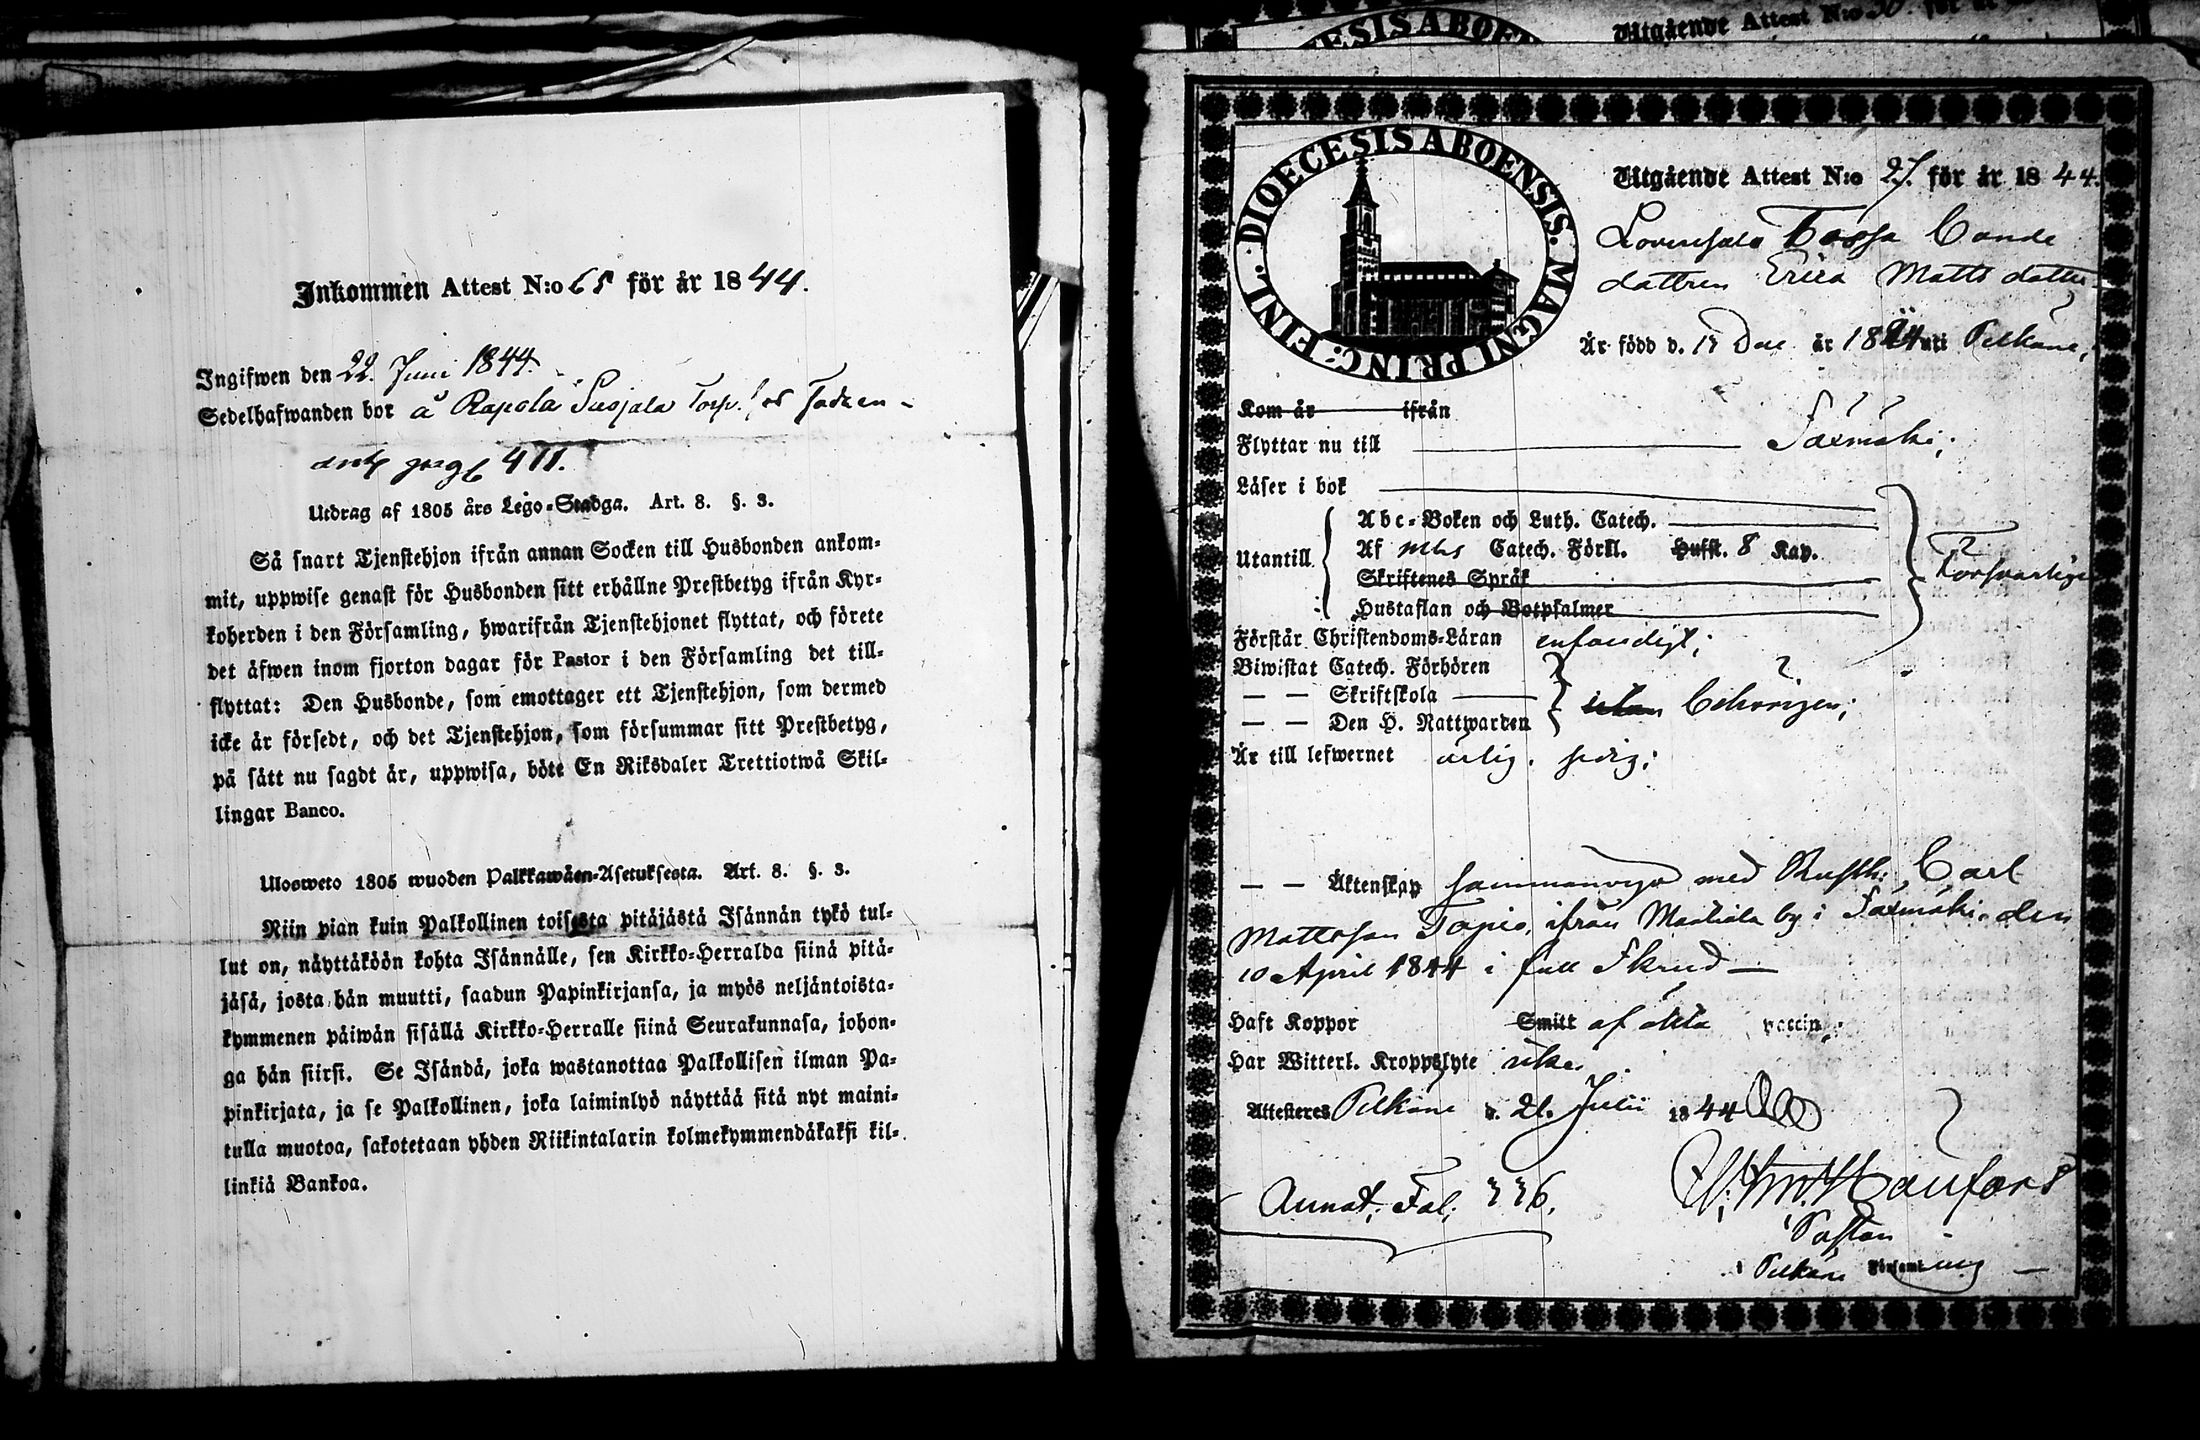 Inkommen Attest N:o 65 för år 1844.
Ingifwen den 22. Juni 1844.
Sedelhafwanden bor å Rapola Susjala Torp.
pag 411.
Utdrag af 1805 års Lego-Stadga. Art. 8. §. 3.
Så snart Tjenstehjon ifrån annan Socken till Husbonden ankom-
mit, uppwise genast för Husbonden sitt erhållne Prestbetyg ifrån Kyr-
koherden i den Församling, hwarifrån Tjenstehjonet flyttat, och förete
det äfwen inom fjorton dagar för Pastor i den Församling det till-
flyttat: Den Husbonde, som emottager ett Tjenstehjon, som dermed
icke är försedt, och det Tjenstehjon, som försummar sitt Prestbetyg,
på sätt nu sagdt är, uppwisa, böte En Riksdaler Trettiotwå Skil-
lingar Banco.
Ulosweto 1805 wuoden Palkkawäen-Asetuksesta. Art. 8. §. 3.
Niin pian kuin Palkollinen toisesta pitäjästä Isännän tykö tul-
lut on, näyttäköön kohta Isännälle, sen Kirkko-Herralda siinä pitä-
jäsä, josta hän muutti, saadun Papinkirjansa, ja myös neljäntoista-
kymmenen päiwän sisällä Kirkko-Herralle siinä Seurakunnasa, johon-
ga hän siirsi. Se Isändä, joka wastanottaa Palkollisen ilman Pa-
pinkirjata, ja se Palkollinen, joka laiminlyö näyttää sitä nyt maini-
tulla muotoa, sakotetaan yhden Riikintalarin kolmekymmendäkaksi kil-
linkiä Bankoa.
Utgående Attest N:o 30. för år
DIOECESIS ABOENSIS. MAGNI PRINC: FINL.
Utgående Attest N:o 27. för år 1844.
Tossa Bonde
dottren Erica Matts dotter
Är född d. 17 Dec år 1824 uti Pelkäne,
Kom år ifrån
Flyttar nu till Säxmäki;
Läser i bok
Utantill
Abc-Boken och Luth. Catech.
Af mbs Catech. Förkl. Hufst. 8 Kap.
Skriftenes Språk
Hustaflan och Botpsalmer
Försvarligt
Förstår Christendoms-Läran enfaldigt;
Biwistat Catech. Förhören
— — Skriftskola
— — Den H. Nattwarden
behörigen;
Är till lefwernet ärlig. sedig;
— — Äktenskap sammanvigd med Rusth. Carl
Mattsson Tapio, ifrån by i Säxmäki den
10 April 1844 i full Skrud —
Haft Koppor Smitt af äkta vaccin;
Har Witterl. Kroppslyte icke.
Attesteres Pelkäne d. 21. Juni 1844
Annot. Fol. 336.
Pastor
i Pelkäne Församling —